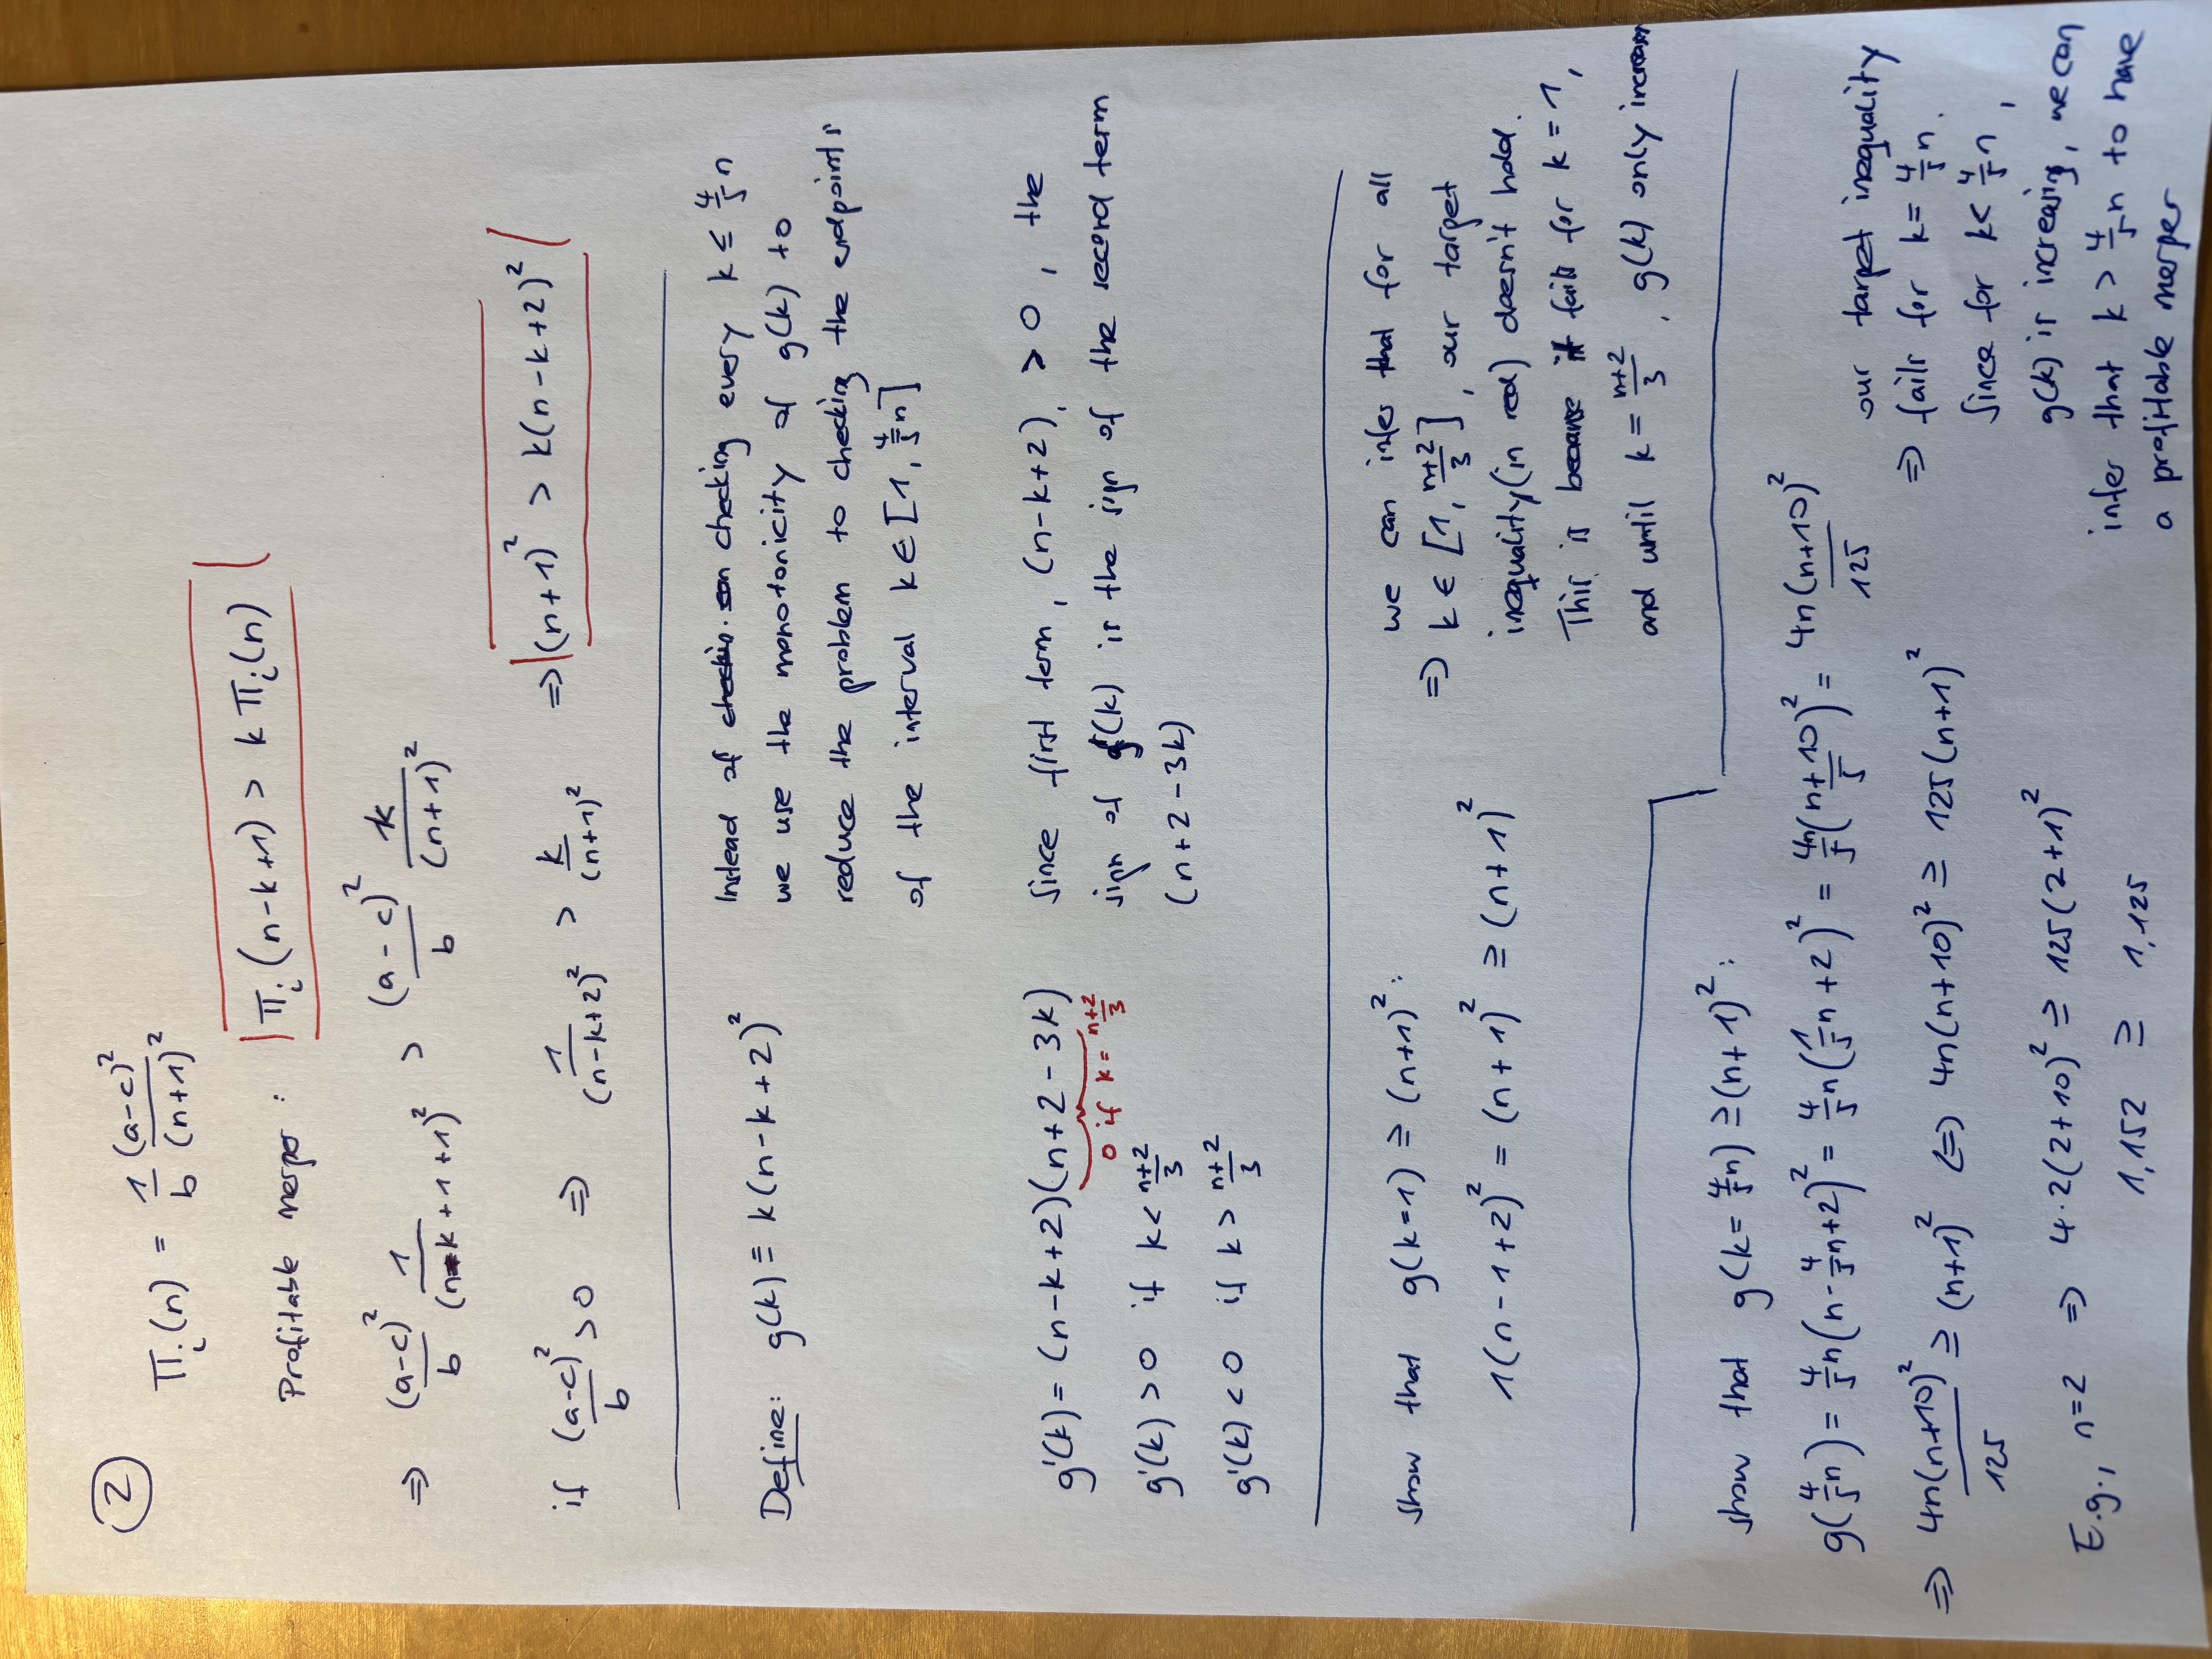 ②
Π_i(n) = 1/b (a-c)²/(n+1)²
Profitable merger: Π_i(n-k+1) > k Π_i(n)
⇒ (a-c)²/b 1/(n-k+1+1)² > (a-c)²/b k/(n+1)²
if (a-c)²/b > 0 ⇒ 1/(n-k+2)² > k/(n+1)² ⇒ (n+1)² > k(n-k+2)²
Define: g(k) ≡ k(n-k+2)²
Instead of checking every k ≤ 4/5 n
we use the monotonicity of g(k) to
reduce the problem to checking the endpoints
of the interval k ∈ [1, 4/5 n]
g'(k) = (n-k+2)(n+2-3k)
0 if k = n+2/3
g'(k) > 0 if k < n+2/3
g'(k) < 0 if k > n+2/3
Since first term, (n-k+2), > 0, the
sign of g'(k) is the sign of the second term
(n+2-3k)
show that g(k=1) ≥ (n+1)²:
1(n-1+2)² = (n+1)² ≥ (n+1)²
⇒ we can infer that for all
k ∈ [1, n+2/3], our target
inequality (in red) doesn't hold.
This is because it fails for k=1,
and until k = n+2/3, g(k) only increases
show that g(k = 4/5 n) ≥ (n+1)²:
g(4/5 n) = 4/5 n(n - 4/5 n + 2)² = 4/5 n(1/5 n + 2)² = 4n/5 (n+10/5)² = 4n(n+10)²/125
⇒ 4n(n+10)²/125 ≥ (n+1)² ⇔ 4n(n+10)² ≥ 125(n+1)²
E.g., n=2 ⇒ 4·2(2+10)² ≥ 125(2+1)²
1,152 ≥ 1,125
our target inequality
⇒ fails for k = 4/5 n.
Since for k < 4/5 n,
g(k) is increasing, we can
infer that k > 4/5 n to have
a profitable merger